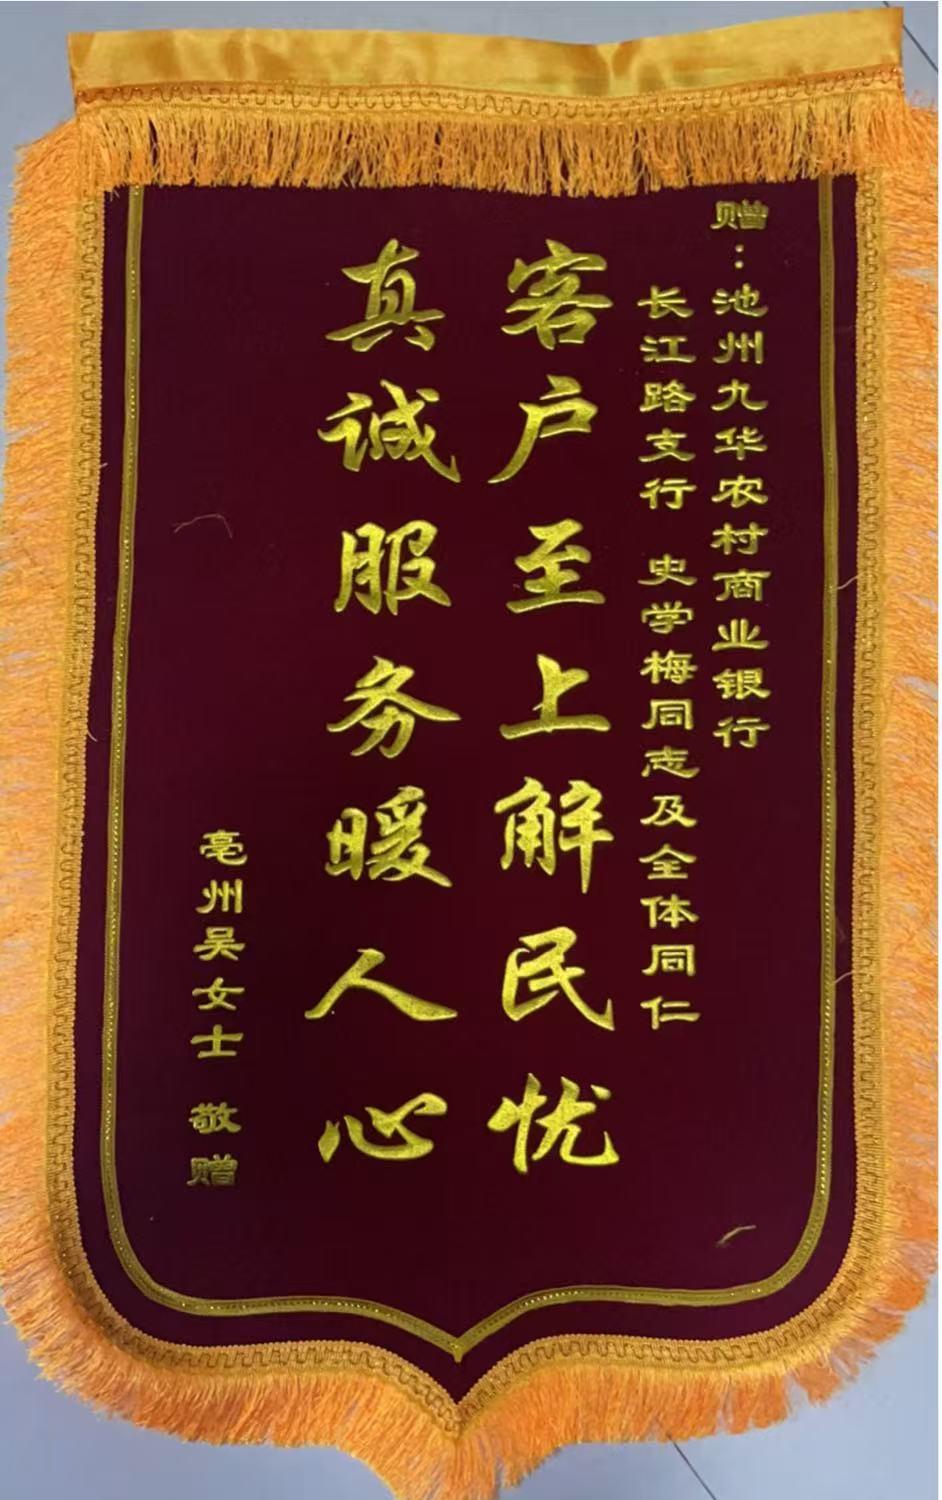 赠:池州九华农村商业银行
长江路支行 史学梅同志及全体同仁
客户至上解民忧
真诚服务暖人心
亳州吴女士 敬赠